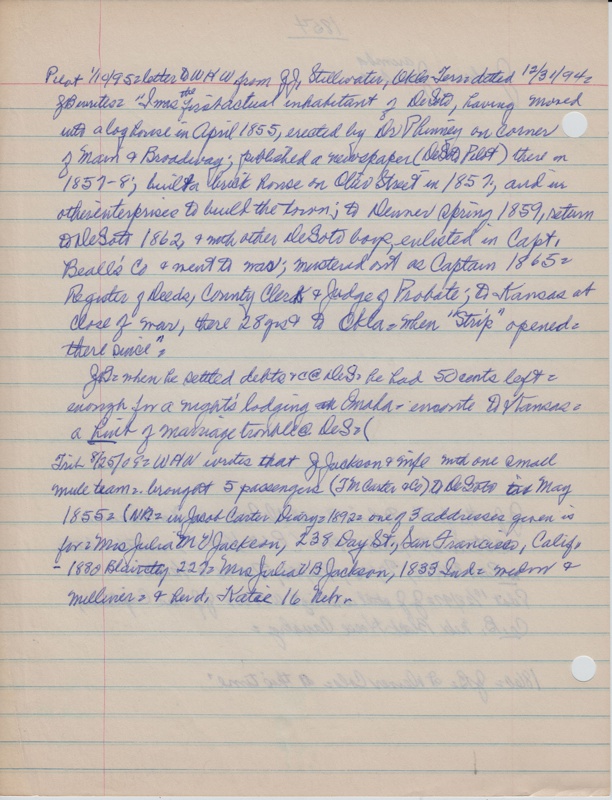 Pilot 1/10/95 = letter to WHW from JJ, Stillwater, Okla-Terr = dated 12/31/94 =
JB writes = "I was the first actual inhabitant of DeSoto, having moved
into a log house in April 1855, erected by Dr Phinney on corner
of Main & Broadway; published a newspaper (DeSoto Pilot) there in
1857-8; built a brick house on Olive Street in 1857; and in
other enterprises to build the town; to Denver spring 1859, return
to DeSoto 1862, & with other DeSoto boys, enlisted in Capt.
Beall's Co & went to war; mustered out as Captain 1865 =
Register of Deeds, County Clerk & Judge of Probate; to Kansas at
close of war, there 28 yrs & to Okla = when "Strip" opened =
there since" =
JB = when he settled debts &c @ DeS = he had 50 cents left =
enough for a night's lodging Omaha - enroute to Kansas =
a hint of marriage trouble @ DeS = (
Trib 8/25/05 = WHW writes that J Jackson & wife with one small
mule team = brought 5 passengers (JM Carter & Co) to DeSoto in May
1855 = (NB = in Jacob Carter Diary = 1892 = one of 3 addresses given is
for = Mrs Julia Jackson, 238 Day St., San Francisco, Calif.
- 1880 Blair 227 = Mrs Julia B Jackson, 1833 Ind = widow &
milliner = & her d. Katie 16 Nebr.